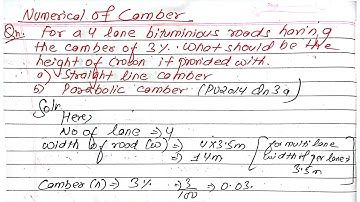 Numerical of Camber
Qn: For a 4 lane bituminious roads having
the camber of 3%. What should be the
height of crown if provided with.
a) Straight line camber
b) Parabolic camber (PU2014 Qn 3a)
Soln
Here,
No of lane ⇒ 4
Width of road (w) ⇒ 4×3.5m
⇒ 14m
[for multi lane
width of per lane =
3.5m]
Camber (n) ⇒ 3% ⇒ 3/100 ⇒ 0.03.